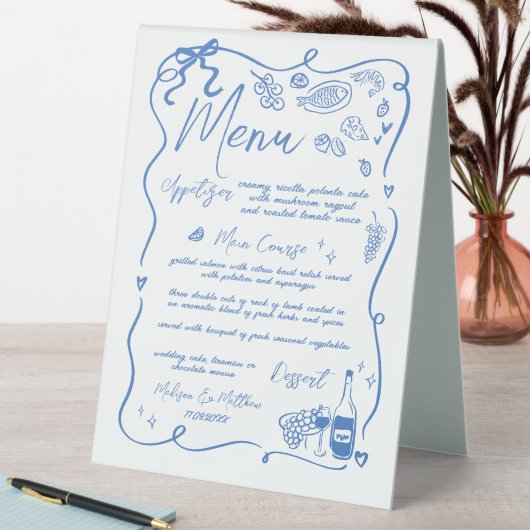 Menu
Appetizer
creamy ricotta polenta cake
with mushroom ragout
and roasted tomato sauce
Main Course
grilled salmon with citrus basil relish served
with potatoes and asparagus
three double cuts of rack of lamb coated in
an aromatic blend of fresh herbs and spices
served with bouquet of fresh seasonal vegetables
wedding cake, tiramisu or
chocolate mouse
Dessert
Madison & Matthew
17.08.20XX